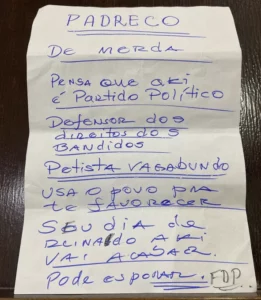 PADRECO
DE MERDA
PENSA QUE AKI
É PARTIDO POLÍTICO
DEFENSOR DOS
DIREITOS DOS
BANDIDOS
PETISTA VAGABUNDO
USA O POVO PRA
TE FAVORECER
SEU DIA de
REINAdo AKI
VAI ACABAR.
Pode esperar. FDP.